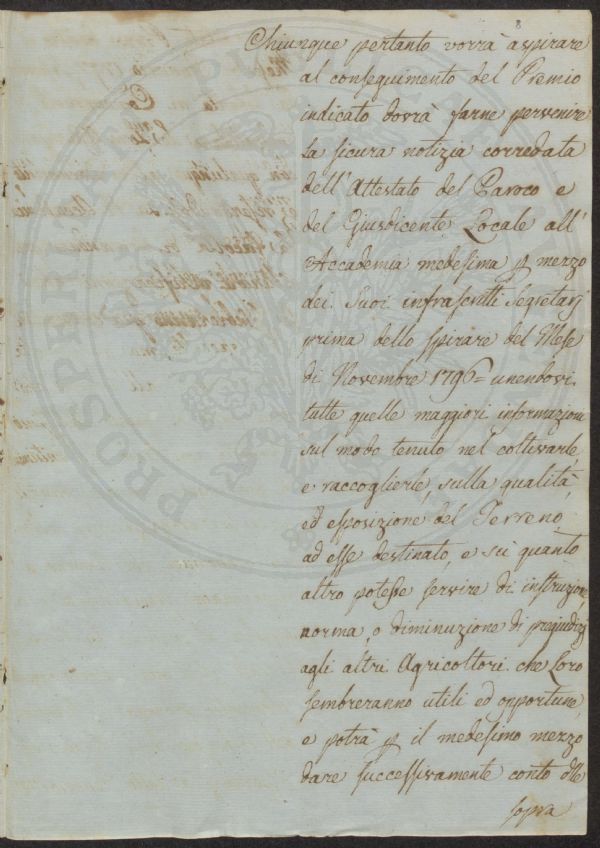 8
Chiunque pertanto vorrà aspirare
al conseguimento del Premio
indicato dovrà farne pervenire
la sicura notizia corredata
dell'Attestato del Paroco e
del Giusdicente Locale all'
Accademia medesima p mezzo
dei Suoi infrascritti Segretarj
prima dello spirare del Mese
di Novembre 1796= unendovi
tutte quelle maggiori informazioni
sul modo tenuto nel coltivarle,
e raccoglierle, sulla qualità,
ed esposizione del Terreno
ad esse destinato, e su quanto
altro potesse servire di instruzione,
norma, o diminuzione di pregiudizj
agli altri Agricoltori che Loro
sembreranno utili ed opportune,
e potrà p il medesimo mezzo
dare successivamente conto dlle
sopra